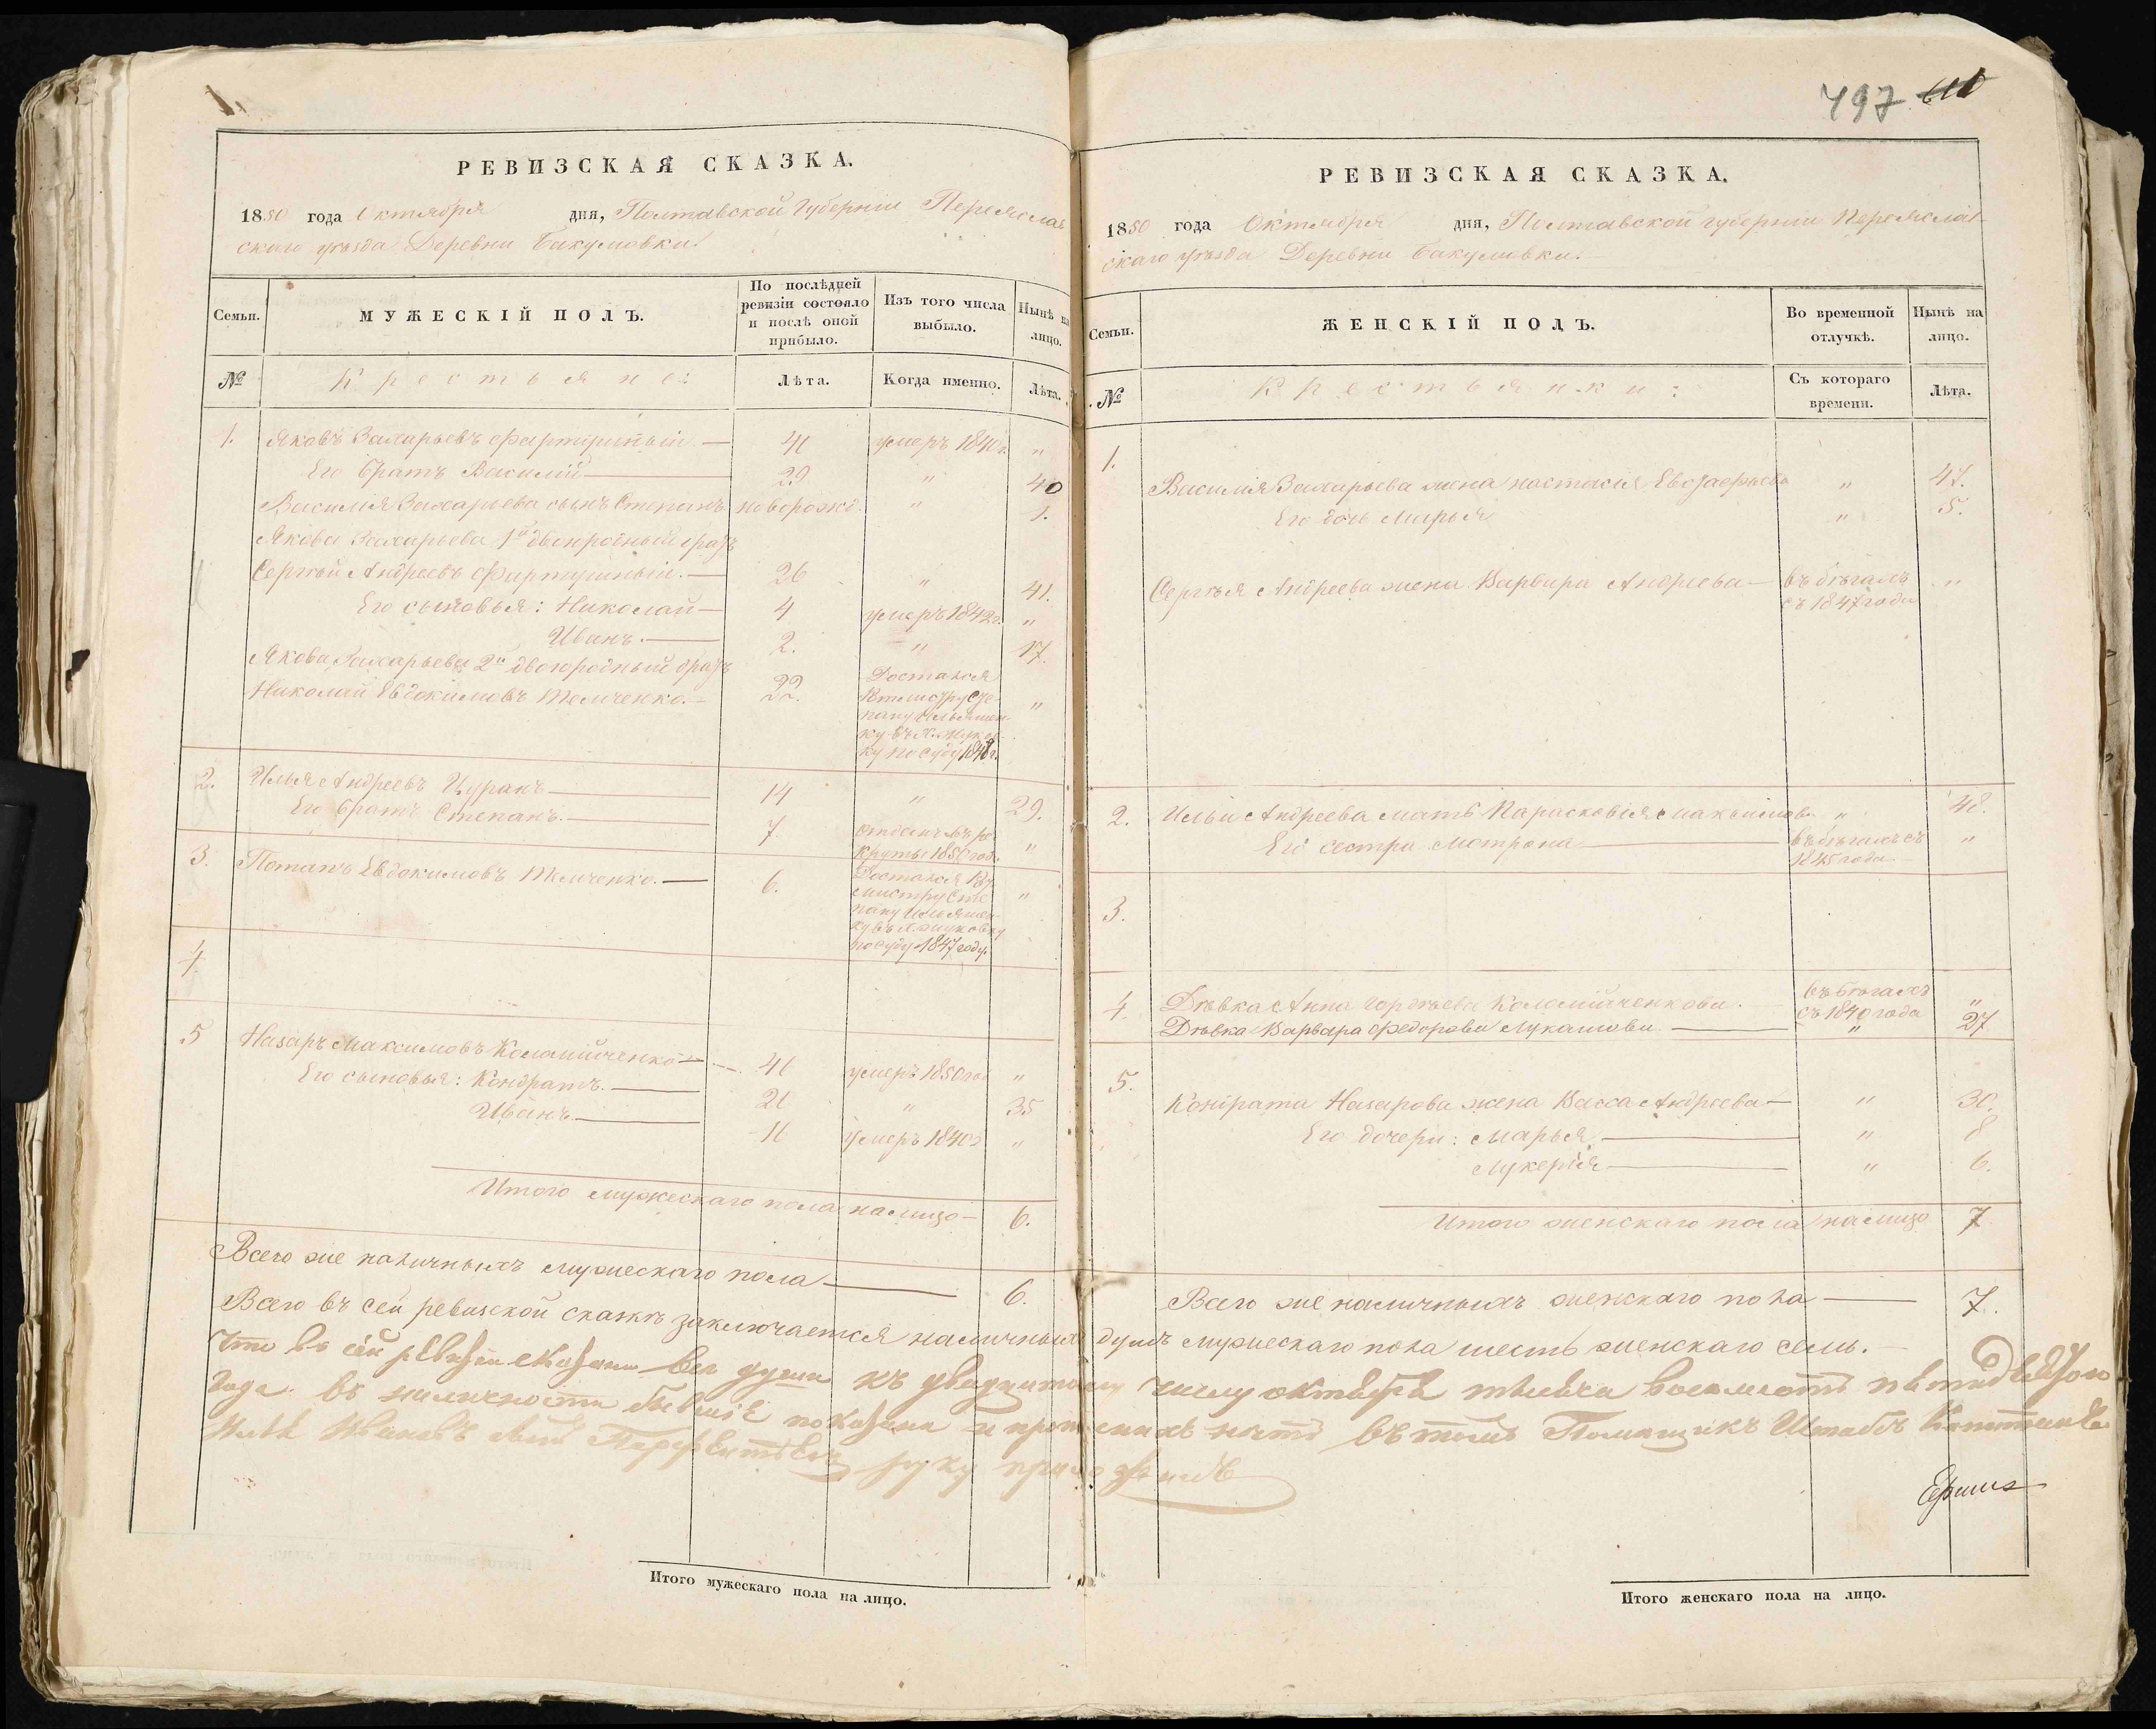 497
РЕВИЗСКАЯ СКАЗКА.
1850 года Октября дня, Полтавской Губернии Переяслав
скаго уѣзда Деревни Бакумовки.
Семьи.
МУЖЕСКІЙ ПОЛЪ.
По послѣдней
ревизіи состояло
и послѣ оной
прибыло.
Изъ того числа
выбыло.
Нынѣ на
лицо.
№
Крестьяне:
Лѣта.
Когда именно.
Лѣта.
1. Яковъ Захарьевъ — 41 умеръ 1840г. "
Его братъ Василій — 29 " 40
Василія Захарьева сынъ Степанъ новорожд. " 1.
Якова Захарьева 1й двоюродный братъ
Сергѣй Андреевъ — 26 " 41.
Его сыновья: Николай — 4 умеръ 1842г. "
Иванъ. — 2. " 17.
Якова Захарьева 2й двоюродный братъ
Николай Евдокимовъ Темченко. — 22. "
Достался
по суду 1848г.
2. Илья Андреевъ Цуранъ — 14 " 29.
Его братъ Степанъ. — 7. отданъ въ ре "
круты 1850 год.
3. Потапъ Евдокимовъ Темченко. — 6. Достался "
мистру Сте
пану Ильяшен
по суду 1847 году.
4.
5 Назаръ Максимовъ Коломійченко — 46 умеръ 1850 год "
Его сыновья: Кондратъ. — 21 " 35
Иванъ. — 16 умеръ 1840г "
Итого мужескаго пола на лицо — 6.
Всего же наличныхъ мужескаго пола — 6.
РЕВИЗСКАЯ СКАЗКА.
1850 года Октября дня, Полтавской губернии Переяслав
скаго уѣзда Деревни Бакумовки.
Семьи.
ЖЕНСКІЙ ПОЛЪ.
Во временной
отлучкѣ.
Нынѣ на
лицо.
№
Крестьянки:
Съ котораго
времени.
Лѣта.
1.
Василія Захарьева жена Настасія " 47.
Его дочь Марья " 5.
Сергѣя Андреева жена Варвара Андреева — въ бѣгахъ "
съ 1847 года
2. Ильи Андреева мать Парасковія Максимова " 48.
Его сестра Мотрона — въ бѣгахъ съ "
1845 года
3.
4. Дѣвка Анна Коломійченкова. въ бѣгахъ "
съ 1840 года
Дѣвка Варвара Федорова Лукашова — " 27
5.
Кондрата Назарова жена Васса Андреева — " 30.
Его дочери: Марья — " 8
Лукерія — " 6.
Итого женскаго пола на лицо 7
Всего же наличныхъ женскаго пола — 7.
Всего въ сей ревизской сказкѣ заключается наличныхъ душъ мужескаго пола шесть женскаго семь. —
Что въ сей ревизкой сказки все души къ двадцатому числу октября тысяча восемсотъ пятидесятого
года въ наличности показана и нѣтъ въ томъ Помещикъ Штабсъ Капитанъ
руку приложилъ
Итого мужескаго пола на лицо.
Итого женскаго пола на лицо.